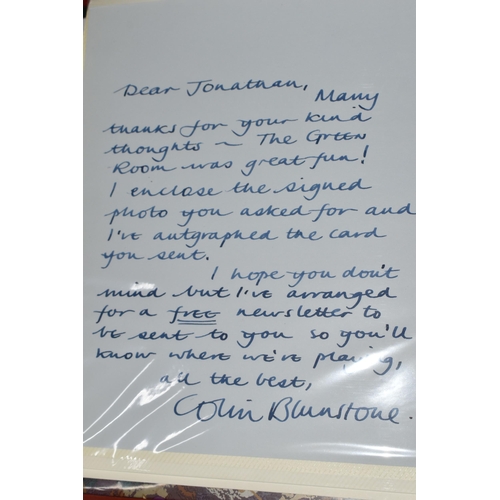 Dear Jonathan,
Many
thanks for your kind
thoughts ~ The Green
Room was great fun!
I enclose the signed
photo you asked for and
I've autgraphed the card
you sent.
I hope you don't
mind but I've arranged
for a free newsletter to
be sent to you so you'll
know where we're playing,
all the best,
Colin Blunstone.